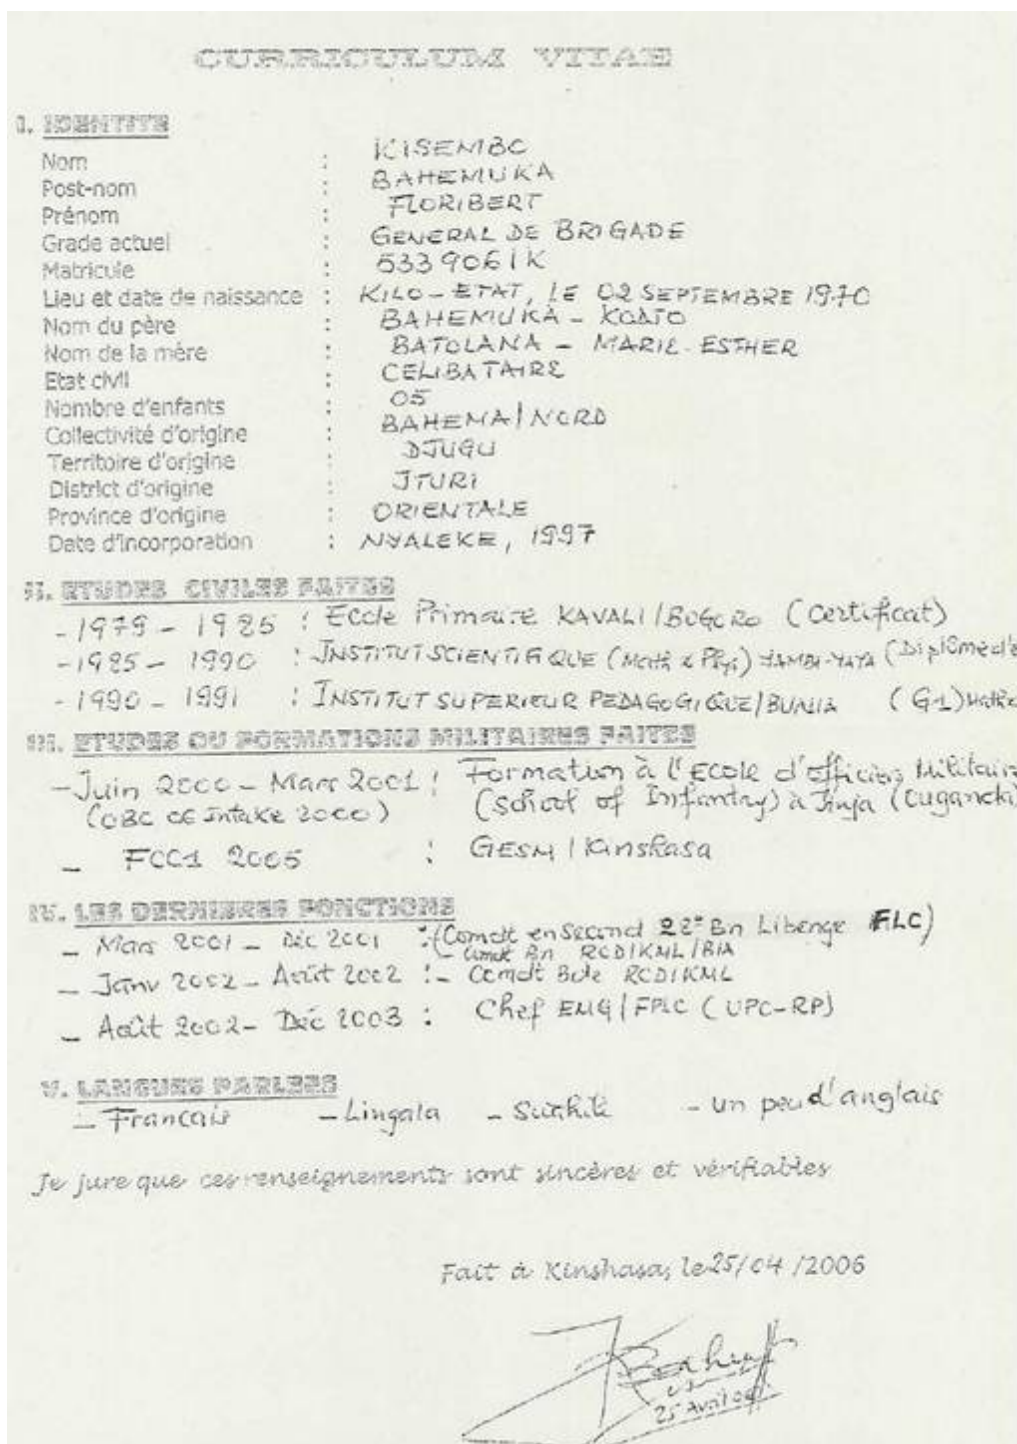 CURRICULUM VITAE
I. IDENTITE
Nom : KISEMBO
Post-nom : BAHEMUKA
Prénom : FLORIBERT
Grade actuel : GENERAL DE BRIGADE
Matricule : 5339061K
Lieu et date de naissance : KILO-ETAT, LE 02 SEPTEMBRE 1970
Nom du père : BAHEMUKA -
Nom de la mère : BATOLANA - MARIE-ESTHER
Etat civil : CELIBATAIRE
Nombre d'enfants : 05
Collectivité d'origine : BAHEMA/NORD
Territoire d'origine : DJUGU
District d'origine : ITURI
Province d'origine : ORIENTALE
Date d'incorporation : NYALEKE, 1997
II. ETUDES CIVILES FAITES
- 1979 - 1985 : Ecole Primaire KAVALI/BOGORO (Certificat)
- 1985 - 1990 : INSTITUT SCIENTIFIQUE (Math & Phys) (Diplôme d'e
- 1990 - 1991 : INSTITUT SUPERIEUR PEDAGOGIQUE/BUNIA (G1) Math
III. ETUDES OU FORMATIONS MILITAIRES FAITES
- Juin 2000 - Mars 2001 : Formation à l'Ecole d'officiers Militair
(OBC Intake 2000) (School of Infantry) à Jinja (Ouganda)
- FCC1 2005 : GESM/Kinshasa
IV. LES DERNIERES FONCTIONS
- Mars 2001 - Déc 2001 : (Comdt en second 22è Bn Libenge FLC)
- Comdt Bn RCD/KML/BIA
- Janv 2002 - Août 2002 : - Comdt Bde RCD/KML
- Août 2002 - Déc 2003 : Chef EMG/FPLC (UPC-RP)
V. LANGUES PARLEES
- Francais - Lingala - Swahili - un peu d'anglais
Je jure que ces renseignements sont sincères et vérifiables
Fait à Kinshasa, le 25/04/2006
25 Avril 06